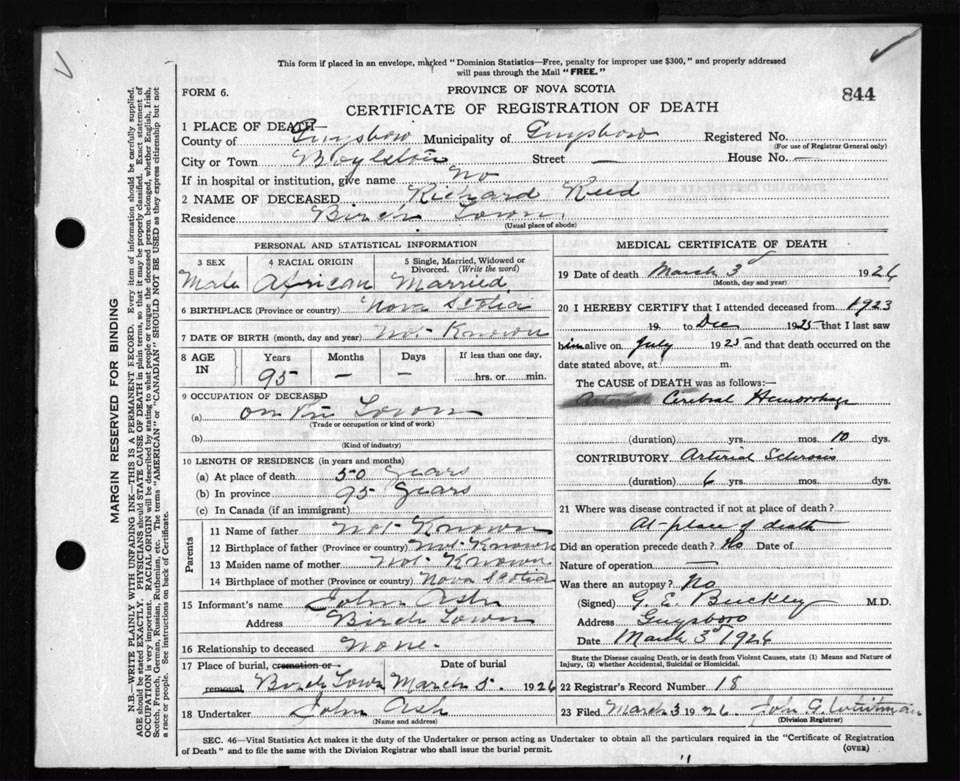 This form if placed in an envelope, marked "Dominion Statistics—Free, penalty for improper use $300," and properly addressed
will pass through the Mail "FREE."
FORM 6.
PROVINCE OF NOVA SCOTIA
844
CERTIFICATE OF REGISTRATION OF DEATH
1 PLACE OF DEATH—
County of Guysboro Municipality of Guysboro Registered No.
(For use of Registrar General only)
City or Town Boylston Street — House No. —
If in hospital or institution, give name No
2 NAME OF DECEASED Richard Reed
Residence Birch Town
(Usual place of abode)
PERSONAL AND STATISTICAL INFORMATION
3 SEX 4 RACIAL ORIGIN 5 Single, Married, Widowed or
Divorced. (Write the word)
Male African Married
6 BIRTHPLACE (Province or country) Nova Scotia
7 DATE OF BIRTH (month, day and year) Not Known
8 AGE IN Years Months Days If less than one day,
95 — — hrs. or min.
9 OCCUPATION OF DECEASED
(a) Town
(Trade or occupation or kind of work)
(b)
(Kind of industry)
10 LENGTH OF RESIDENCE (in years and months)
(a) At place of death 50 years
(b) In province 95 years
(c) In Canada (if an immigrant)
Parents
11 Name of father Not Known
12 Birthplace of father (Province or country) Not Known
13 Maiden name of mother Not Known
14 Birthplace of mother (Province or country) Nova Scotia
15 Informant's name John Ash
Address Birch Town
16 Relationship to deceased None.
17 Place of burial, cremation or Date of burial
removal Birch Town March 5. 1926
18 Undertaker John Ash
(Name and address)
MEDICAL CERTIFICATE OF DEATH
19 Date of death March 3d 1926
(Month, day and year)
20 I HEREBY CERTIFY that I attended deceased from 1923
19 to Dec 1925 that I last saw
him alive on July 1925 and that death occurred on the
date stated above, at m.
The CAUSE of DEATH was as follows:—
Cerebral Hemorrhage
(duration) yrs. mos. 10 dys.
CONTRIBUTORY Arterial Sclerosis
(duration) 6 yrs. mos. dys.
21 Where was disease contracted if not at place of death?
At place of death
Did an operation precede death? No Date of
Nature of operation —
Was there an autopsy? No
(Signed) G. E. Buckley M.D.
Address Guysboro
Date March 3d 1926
State the Disease causing Death, or in death from Violent Causes, state (1) Means and Nature of
Injury, (2) whether Accidental, Suicidal or Homicidal.
22 Registrar's Record Number 18
23 Filed March 3 1926 John G. Whitman
(Division Registrar)
SEC. 46—Vital Statistics Act makes it the duty of the Undertaker or person acting as Undertaker to obtain all the particulars required in the "Certificate of Registration
of Death" and to file the same with the Division Registrar who shall issue the burial permit.
(OVER)
MARGIN RESERVED FOR BINDING
N.B.—WRITE PLAINLY WITH UNFADING INK—THIS IS A PERMANENT RECORD. Every item of information should be carefully supplied.
AGE should be stated EXACTLY. PHYSICIANS should STATE CAUSE OF DEATH in plain terms, so that it may be properly classified. Exact statement of
OCCUPATION is very important. RACIAL ORIGIN will be described by stating to what people or tongue the deceased person belonged, whether English, Irish,
Scotch, French, German, Russian, Ruthenian, etc. The terms "AMERICAN" or "CANADIAN" SHOULD NOT BE USED as they express citizenship but not
a race or people. See instructions on back of Certificate.